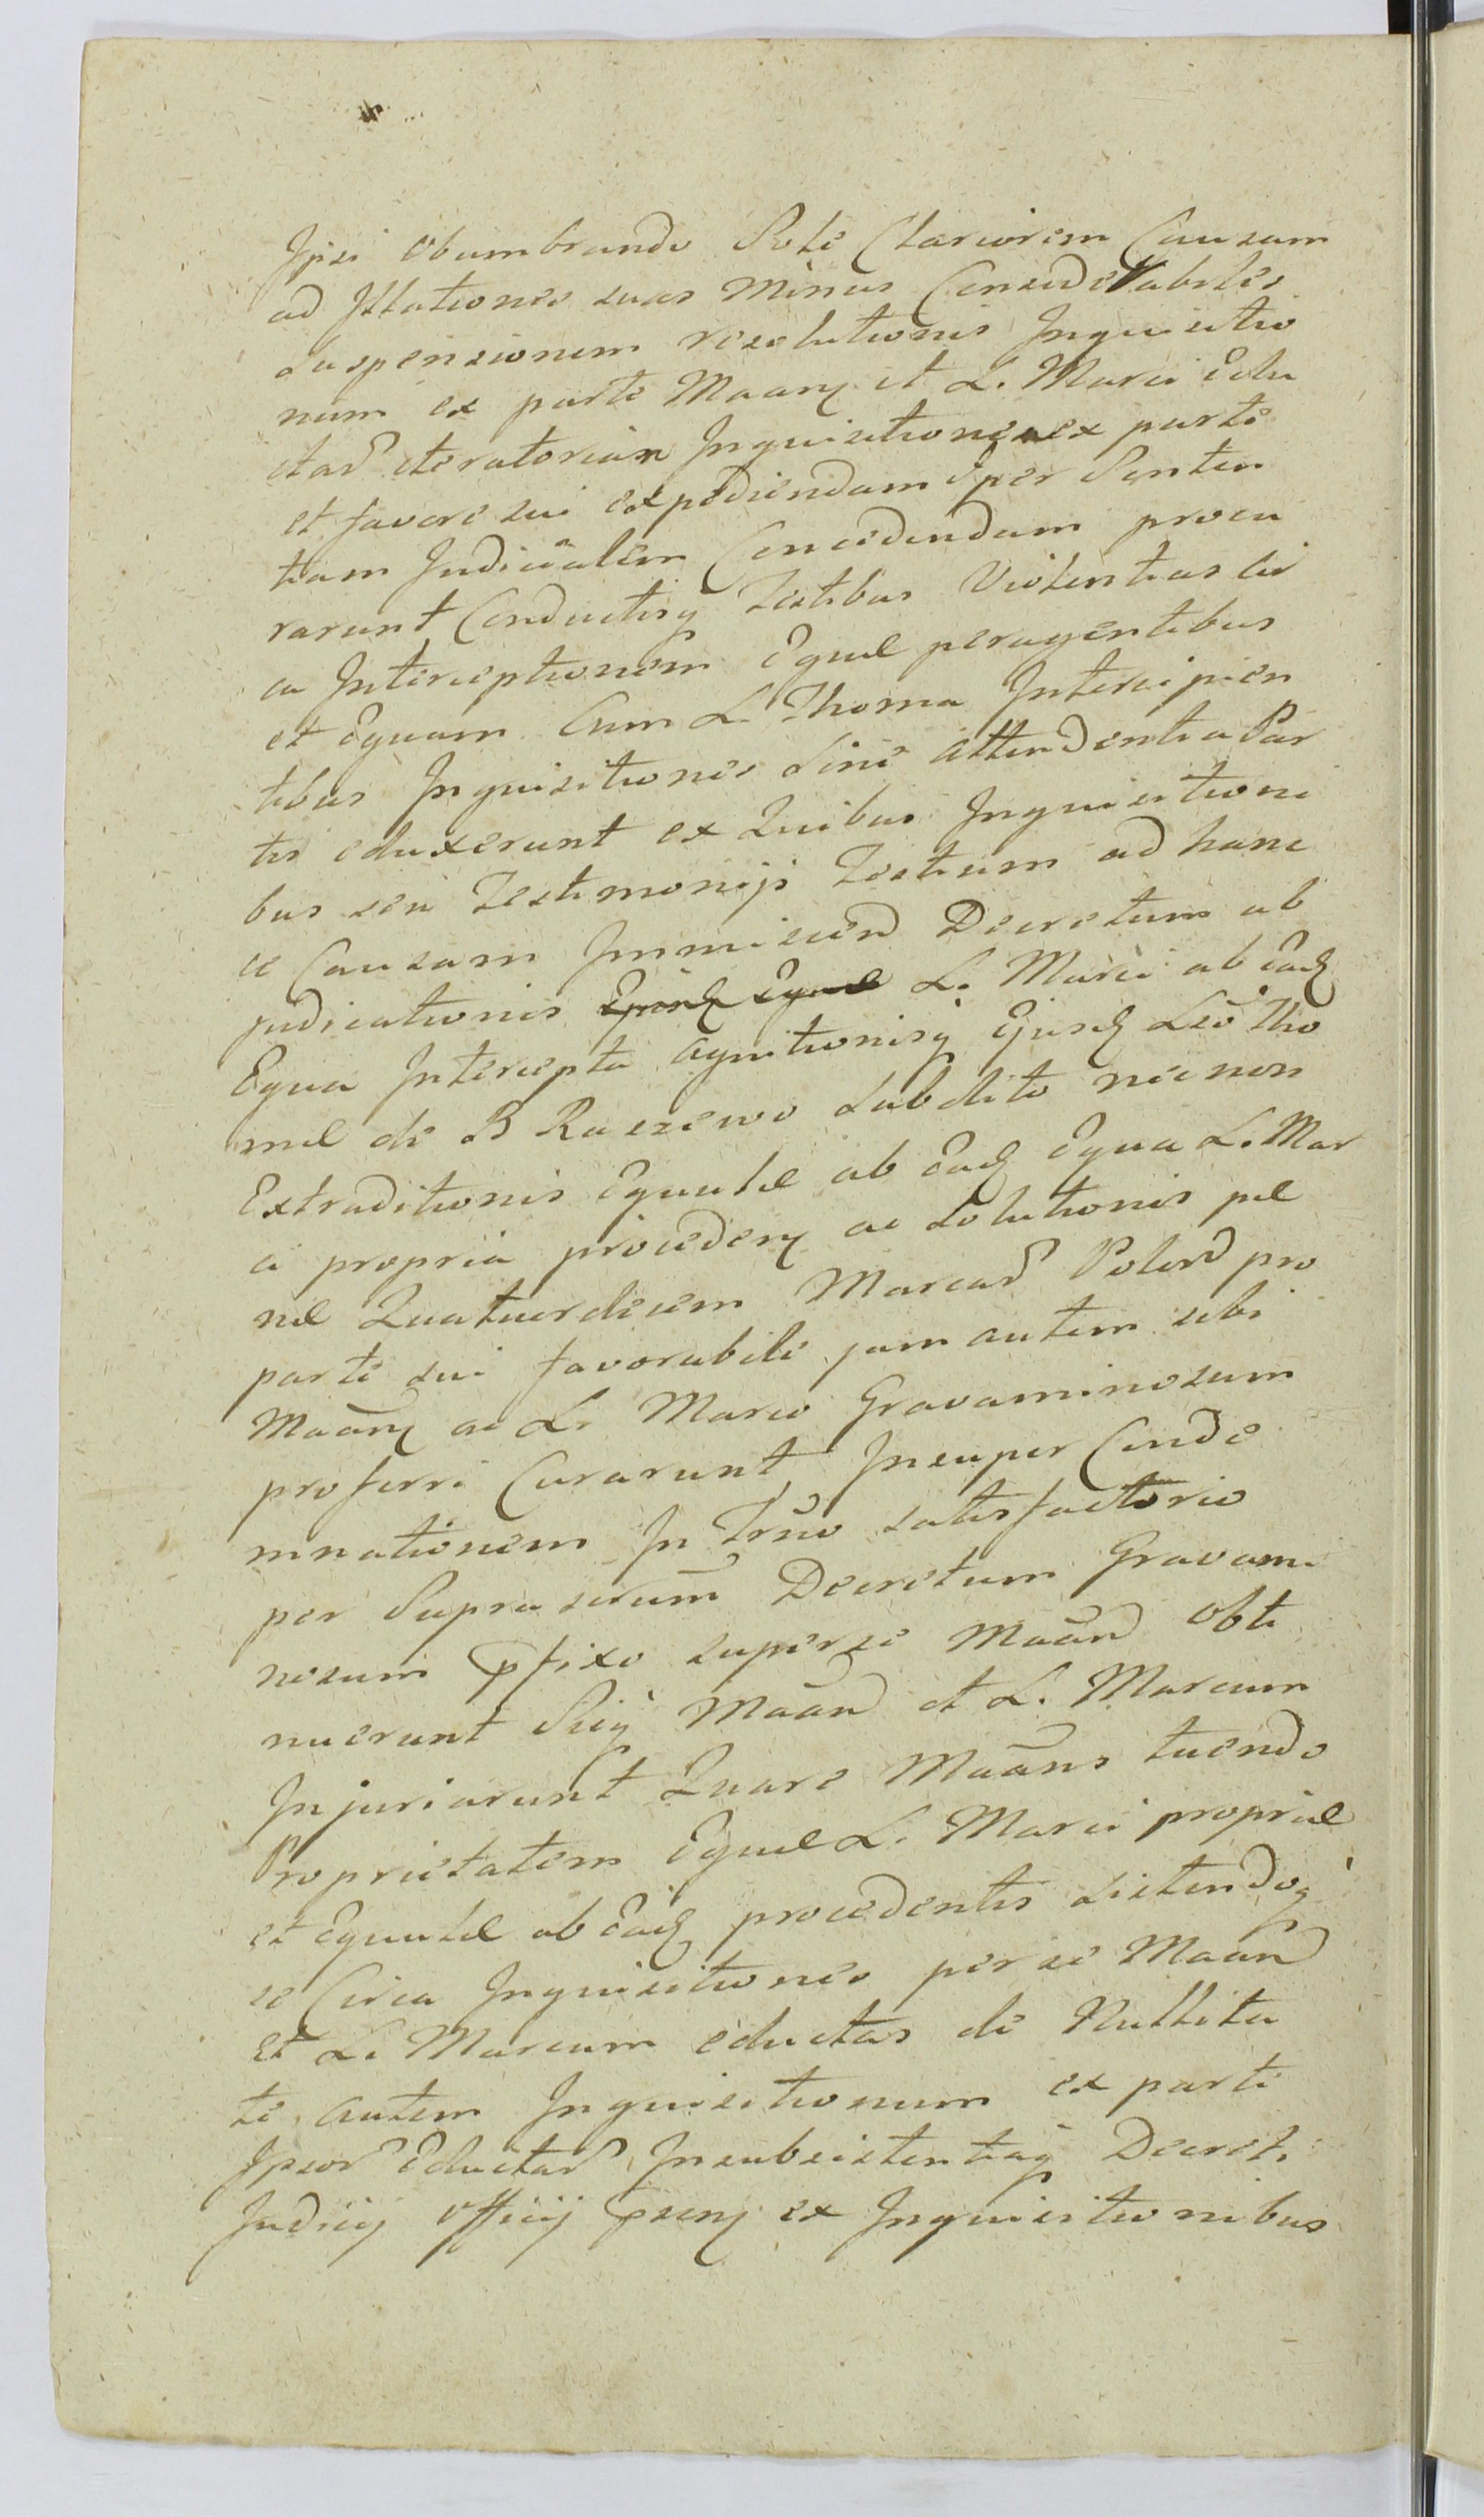 Ipsi Obumbrando Sole Clariorem Causam
ad Illationes suas Minus Considerabiles
suspensionem resolutionis Inquisitio
num ex parte Maanꝝ et L. Marci Edu
ctarꝰ iteratoriam Inquisitionem ex parte
et favore sui expediendam per Senten
tiam Judicialem Concedendam procu
rarunt Conductisq Testibus Violentias cir
ca Interceptionem Equæ peragentibus
et Equam Cum L. Thoma Intercipien
tibus Inquisitiones Sine Attendentia Par
tis eduxerunt ex Quibus Inquisitioni
bus seu Testimonijs Testium ad hanc
ce Causam Immiscen Decretum ab
judicationis L. Marci ab Eadꝫ
Equa Intercepta agnitionisq Ejusdꝫ Lso Tho
mæ de B Raszewo Subdito nec non
Extraditionis Equulæ ab Eadꝫ Equa L. Mar
ci propria procedenꝫ ac Solutionis pœ
næ Quatuordecim Marcarꝰ Polon pro
parte sui favorabile jam autem sibi
Maanꝫ ac L. Marco Gravaminosum
proferri Curarunt Insuper Conde
mnationem In Trno satisfactorio
per Suprascrum Decretum Gravami
nosum Pfixo super se Maan Obti
nuerunt Sicq Maan et L. Marcum
Injuriarunt Quare Maans tuendo
Proprietatem Equæ L. Marci propriæ
et Equulæ ab Eadꝫ procedentis sistendoq
se Circa Inquisitiones per se Maan
et L. Marcum eductas de Nullita
te autem Inquisitionum ex parte
Ipsorꝰ Eductarꝰ Insubsistentiaq Decreti
Judicij Officij Psenꝫ ex Inquisitionibus